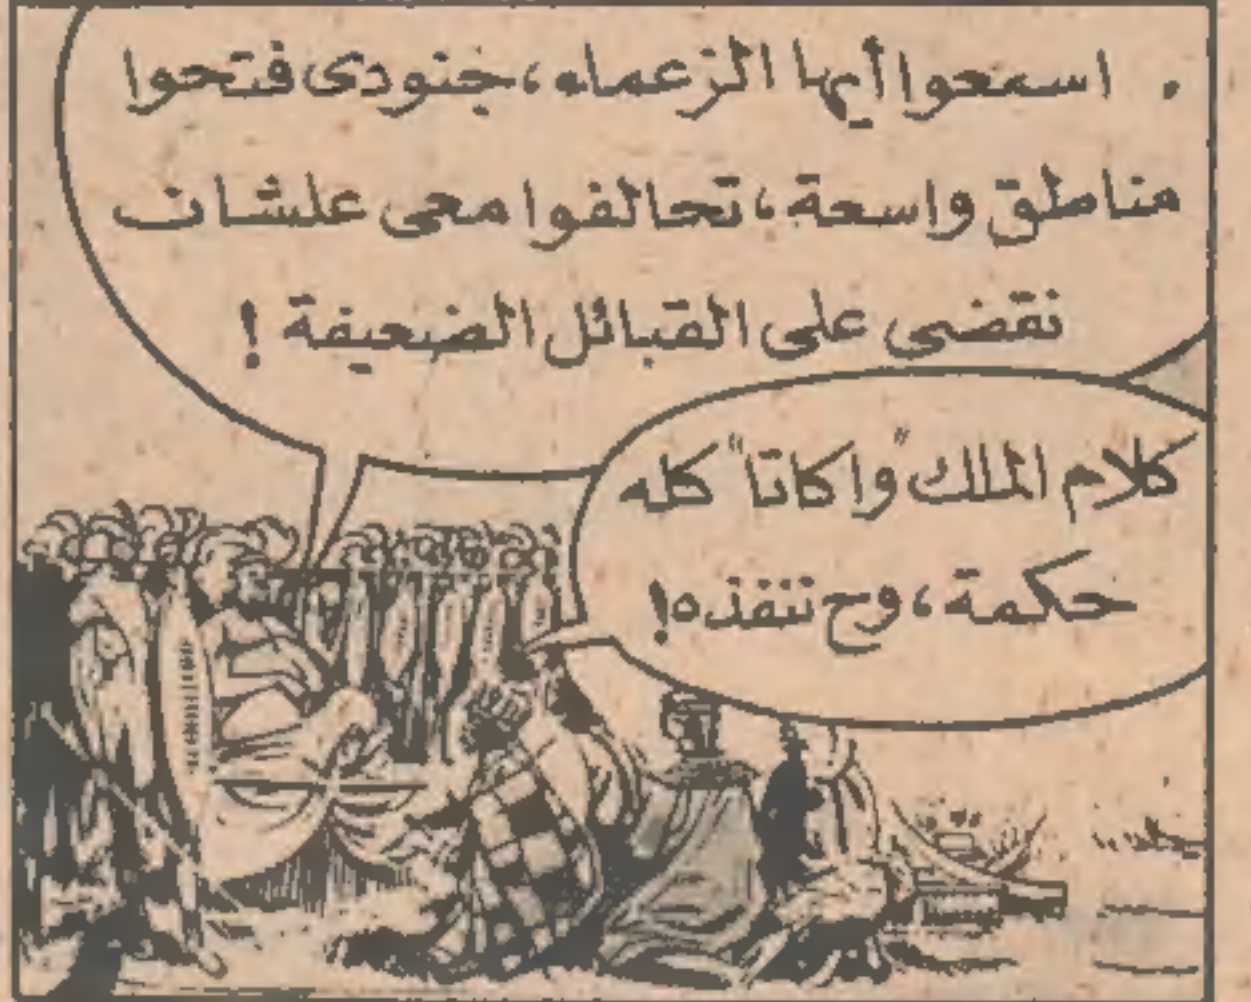 . اسمعوا أيها الزعماء، جنودى فتحوا
مناطق واسعة، تحالفوا معى علشان
نقضى على القبائل الضعيفة !
كلام الملك "واكاتا" كله
حكمة، وح ننفذه!